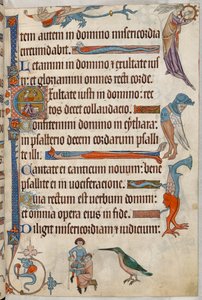 tem autem in domino misericordia
circumdabit.
Letamini in domino et exultate ius
ti: et gloriamini omnes recti corde.
Exultate iusti in domino: rec
tos decet collaudacio.
Confitemini domino in cythara:
in psalterio decem cordarum psalli
te illi.
Cantate ei canticum novum: bene
psallite ei in vociferacione.
Quia rectum est verbum domini:
et omnia opera eius in fide.
Diligit misericordiam et iudicium: